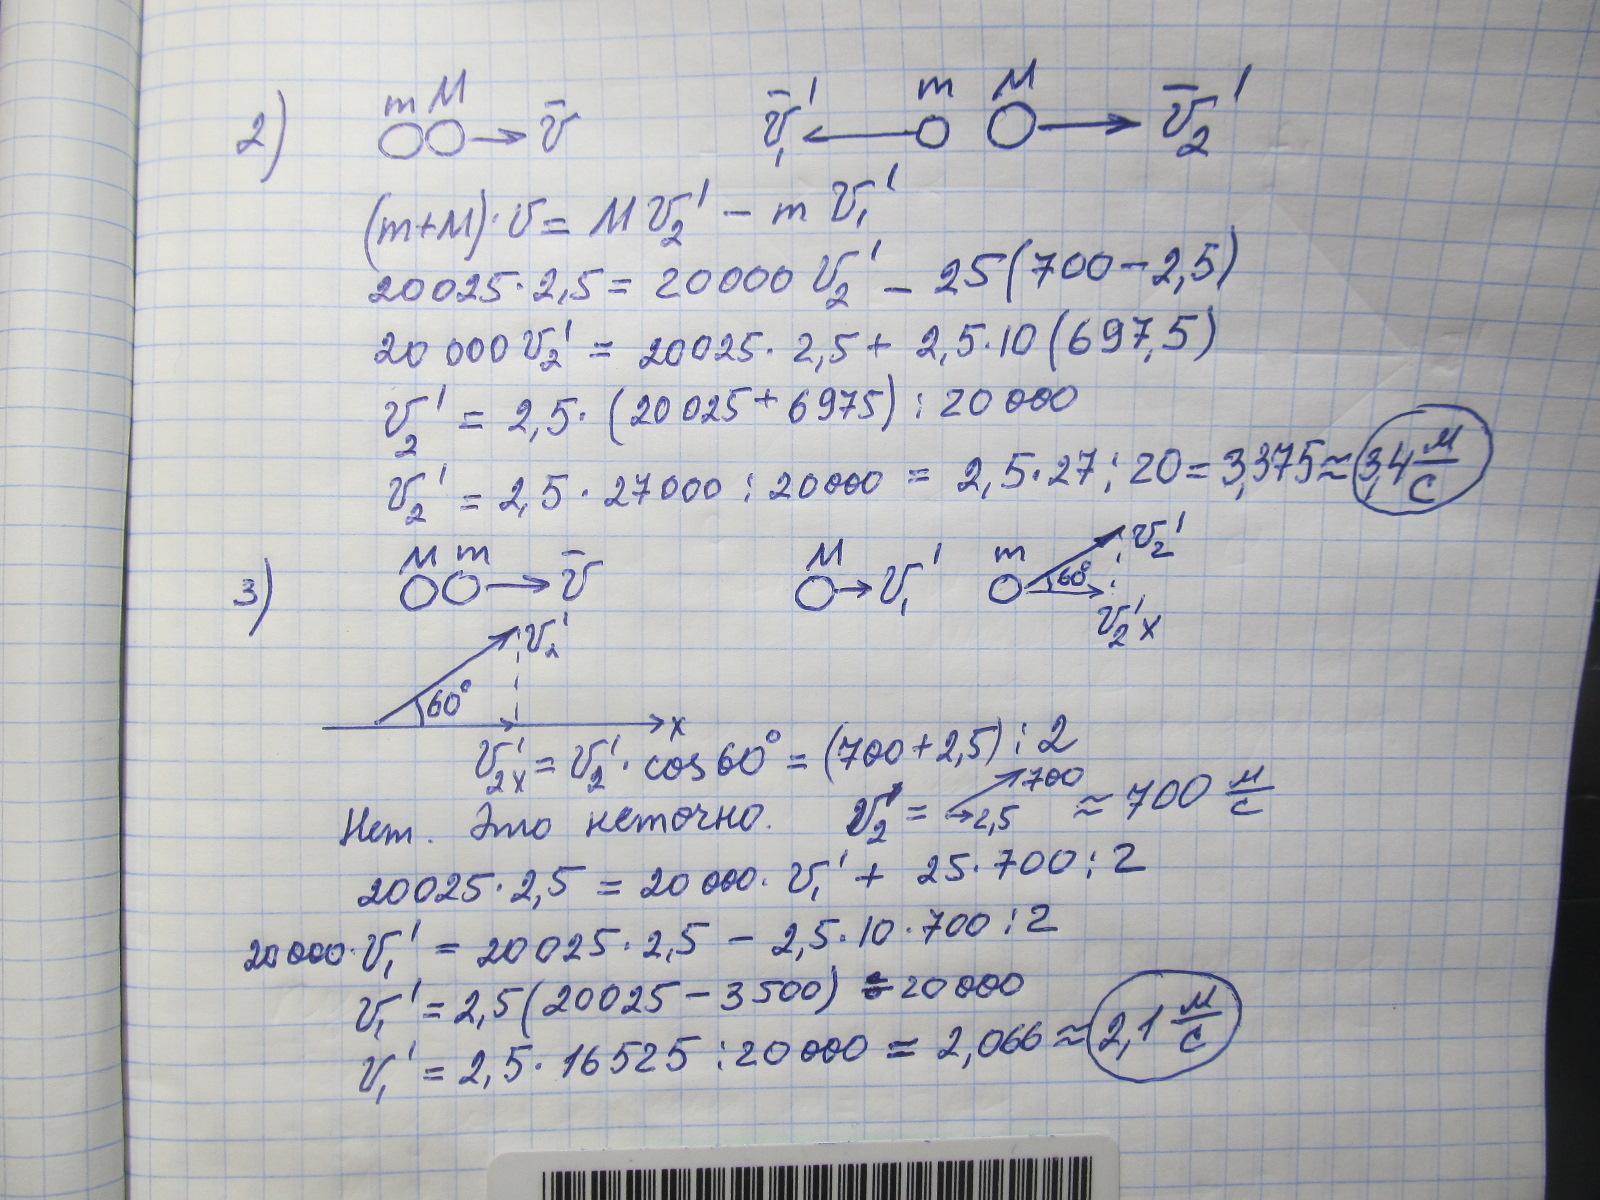 2) m M v̄ v̄₁' m M v̄₂'
(m+M)·v = Mv₂' - mv₁'
20025·2,5 = 20000 v₂' - 25(700-2,5)
20 000 v₂' = 20025·2,5 + 2,5·10(697,5)
v₂' = 2,5·(20025+6975) : 20 000
v₂' = 2,5·27000 : 20000 = 2,5·27 : 20 = 3,375 ≈ 3,4 м/с
3) M m v̄ M v₁' m 60° v₂' v₂'x
v₂' 60° x
v₂x' = v₂'·cos60° = (700+2,5) : 2
Нет. Это неточно. v₂' = 700 2,5 ≈ 700 м/с
20025·2,5 = 20000·v₁' + 25·700 : 2
20000·v₁' = 20025·2,5 - 2,5·10·700 : 2
v₁' = 2,5(20025-3500) : 20000
v₁' = 2,5·16525 : 20000 = 2,066 ≈ 2,1 м/с